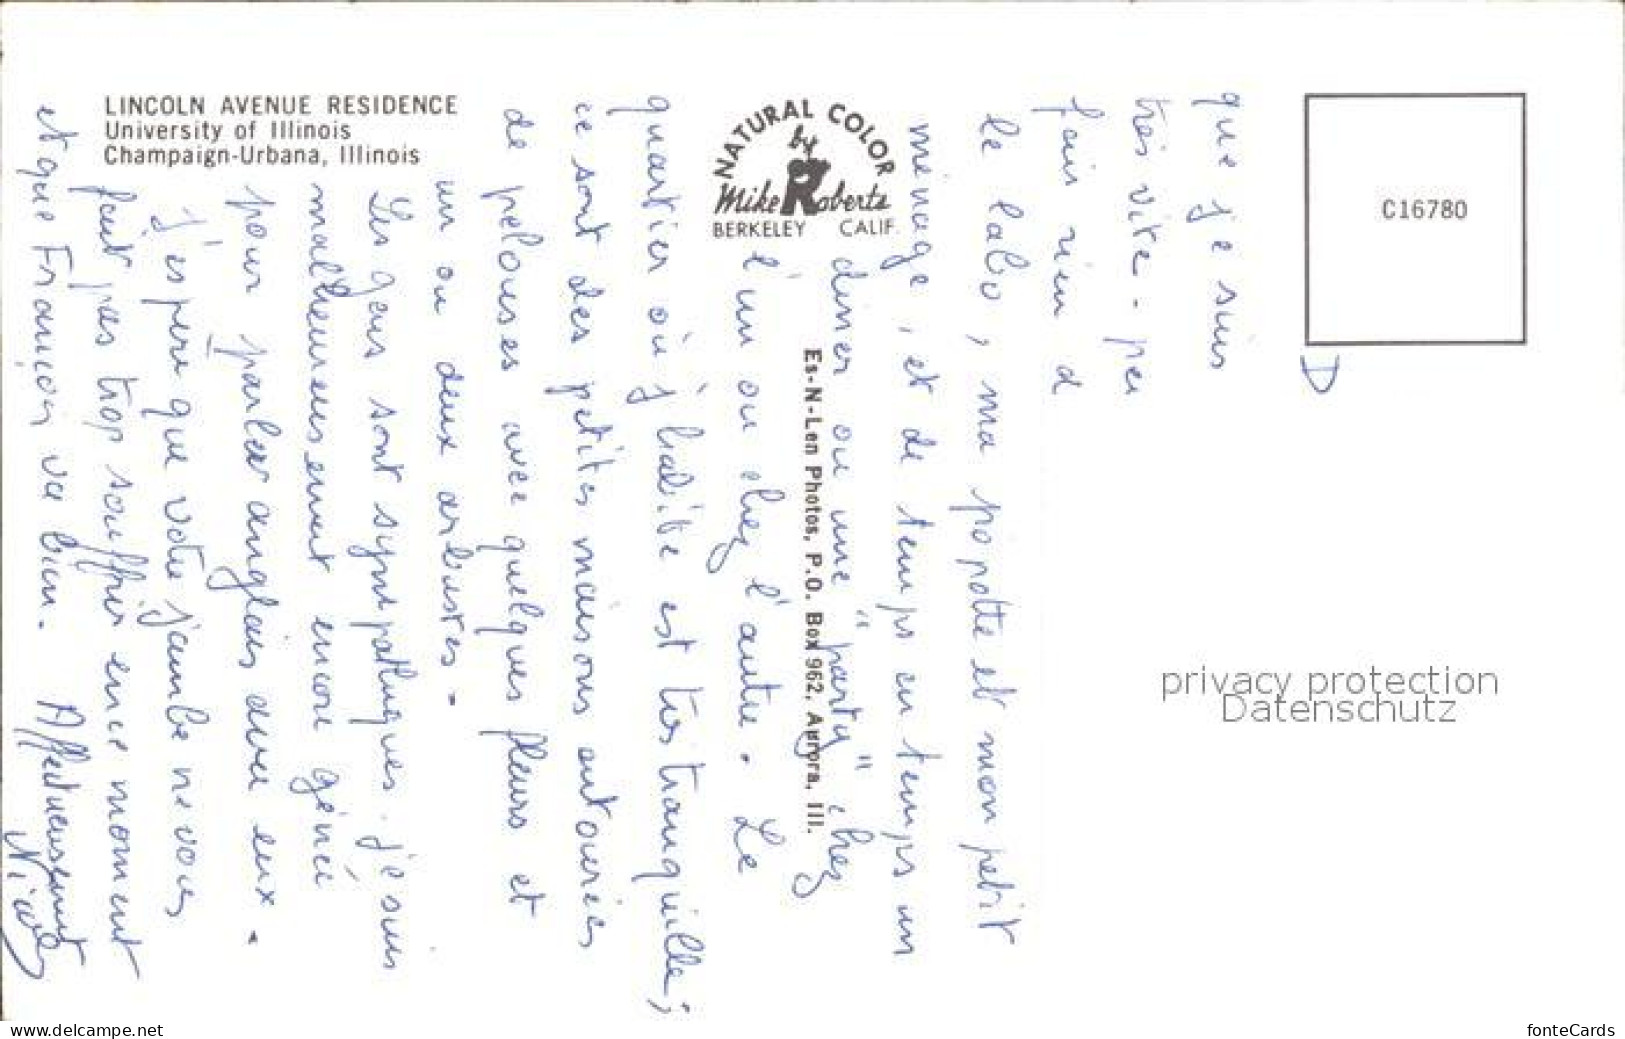 LINCOLN AVENUE RESIDENCE
University of Illinois
Champaign-Urbana, Illinois
NATURAL COLOR
by
Mike Roberts
BERKELEY CALIF.
Es-N-Len Photos, P.O. Box 962, Aurora, Ill.
C16780
D
que je suis
très vite - peu
fais rien d
le labo, ma popotte et mon petit
ménage, et de temps en temps un
diner ou une "party" chez
l'un ou chez l'autre. Le
quartier où j'habite est très tranquille;
ce sont des petites maisons entourées
de pelouses avec quelques fleurs et
un ou deux arbustes.
Les gens sont sympathiques. je suis
malheureusement encore gênée
pour parler anglais avec eux.
J'espère que votre jambe ne vous
fait pas trop souffrir en ce moment
et que François va bien. Affectueusement
privacy protection
Datenschutz
www.delcampe.net
fonteCards